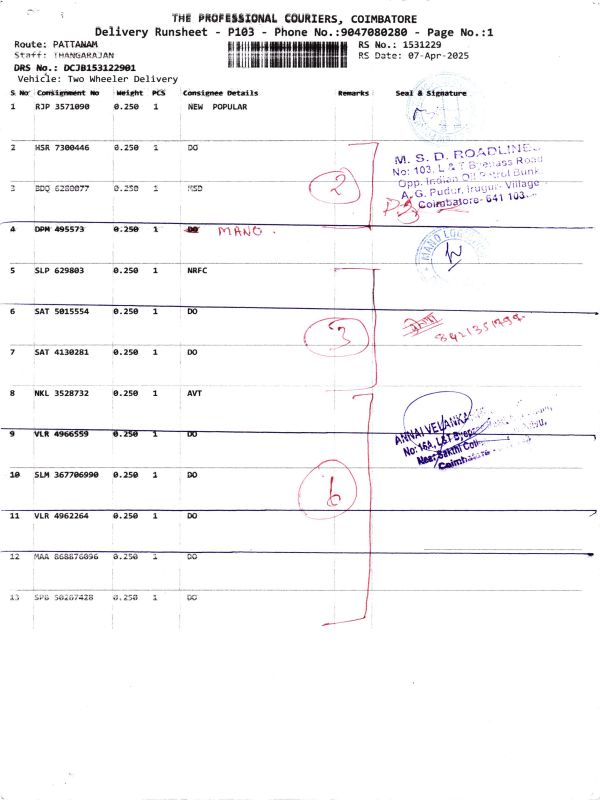 THE PROFESSIONAL COURIERS, COIMBATORE
Delivery Runsheet - P103 - Phone No.:9047080280 - Page No.:1
Route: PATTANAM
RS No.: 1531229
Staff: THANGARAJAN
RS Date: 07-Apr-2025
DRS No.: DCJB153122901
Vehicle: Two Wheeler Delivery
S No Consignment No Weight PCS Consignee Details Remarks Seal & Signature
1 RJP 3571090 0.250 1 NEW POPULAR
2 HSR 7300446 0.250 1 DO
M. S. D. ROADLINE
No: 103, L & T Byepass Road
Opp. Indian Oil Petrol Bunk
A. G. Pudur, Irugur Village
Coimbatore- 641 103
3 BDQ 6280077 0.250 1 MSD
2
4 DPM 495573 0.250 1 DO MANO.
5 SLP 629803 0.250 1 NRFC
6 SAT 5015554 0.250 1 DO
3
7 SAT 4130281 0.250 1 DO
8 NKL 3528732 0.250 1 AVT
ANNAI VELANKA
No: 16A, L&T Byepass
Near Sakthi
Coimbatore
9 VLR 4966559 0.250 1 DO
10 SLM 367706990 0.250 1 DO
6
11 VLR 4962264 0.250 1 DO
12 MAA 868876096 0.250 1 DO
13 SPB 50287428 0.250 1 DO